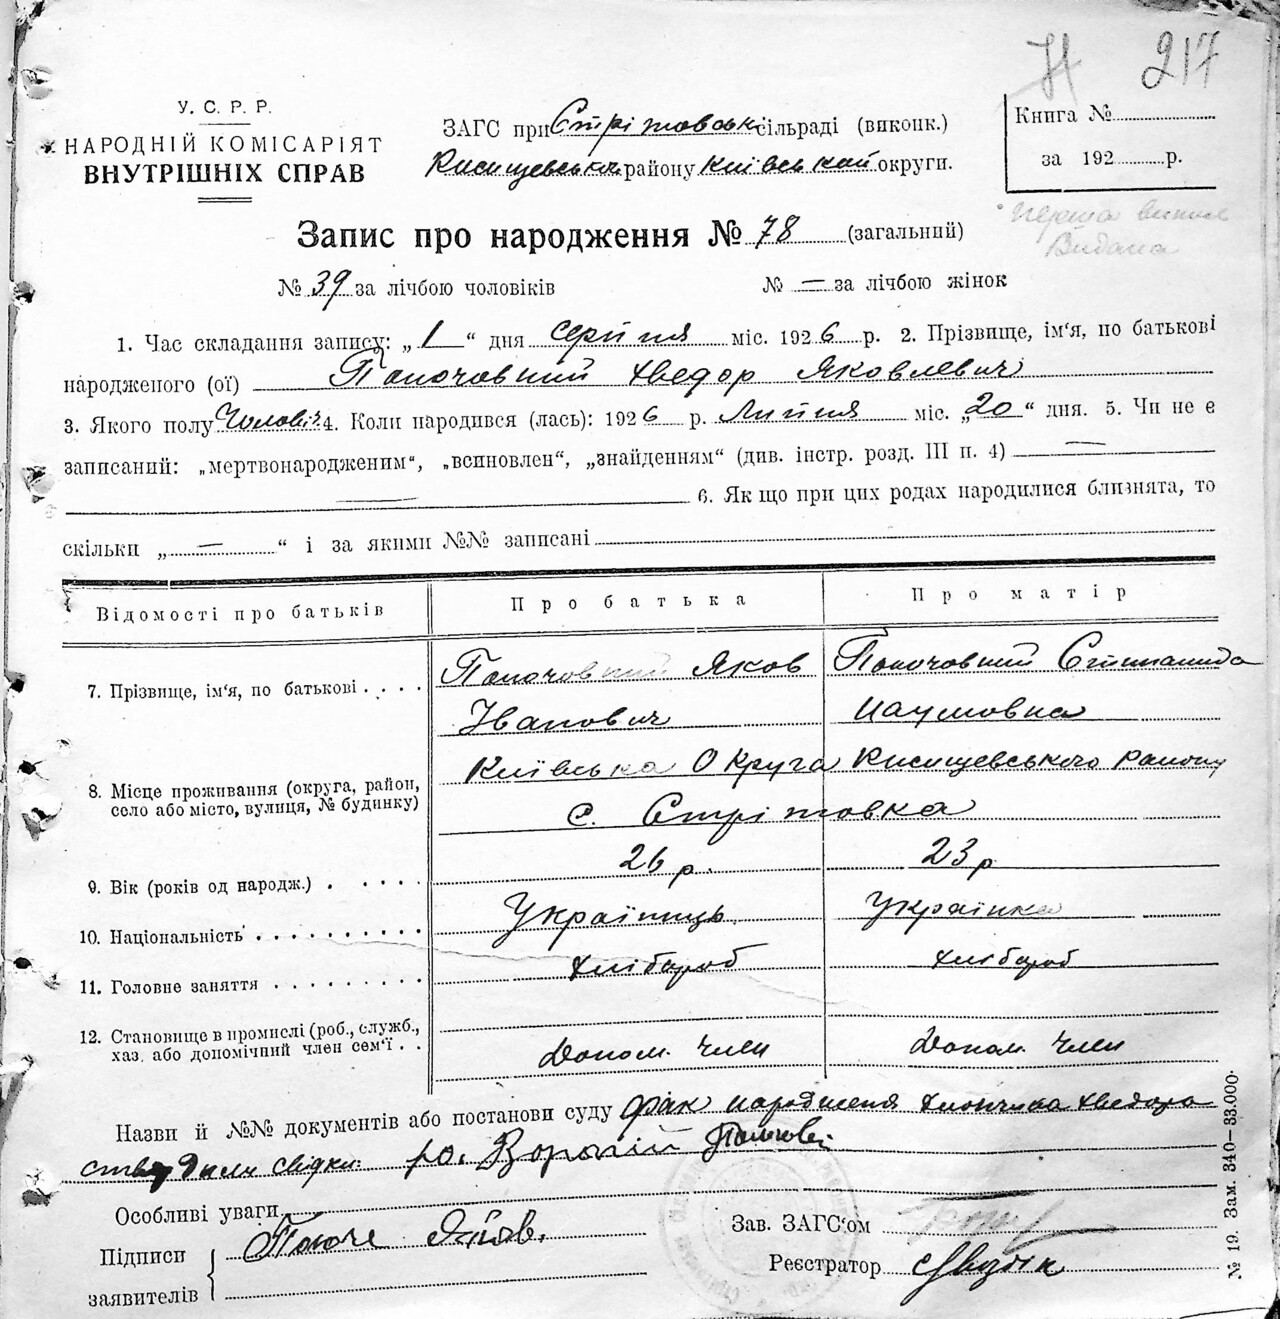 Н 217
У. С. Р. Р.
НАРОДНІЙ КОМІСАРІЯТ
ВНУТРІШНІХ СПРАВ
ЗАГС при Стрітовськ сільраді (виконк.)
району Київської округи.
Книга №
за 192 р.
Перша виписка
Видана
Запис про народження № 78 (загальний)
№ 39 за лічбою чоловіків № — за лічбою жінок
1. Час складання запису: „1“ дня серпня міс. 1926 р. 2. Прізвище, ім‘я, по батькові
народженого (ої) Хведор Яковлевич
3. Якого полу Чолович. 4. Коли народився (лась): 1926 р. Липня міс. „20“ дня. 5. Чи не є
записаний: „мертвонародженим“, „всиновлен“, „знайденням“ (див. інстр. розд. III п. 4) —
— 6. Як що при цих родах народилися близнята, то
скільки „—“ і за якими №№ записані
Відомості про батьків Про батька Про матір
7. Прізвище, ім‘я, по батькові . . . . Яков
Іванович Наумовна
8. Місце проживання (округа, район, село або місто, вулиця, № будинку) Київська Округа району
с. Стрітовка
9. Вік (років од народж.) . . . . . 26 р. 23 р
10. Національність . . . . . . . . . . Українець Українка
11. Головне заняття . . . . . . . . . Хлібороб Хлібороб
12. Становище в промислі (роб., служб.,
хаз. або допомічний член сем‘ї . . Допом. член Допом. член
Назви й №№ документів або постанови суду Факт народження хлопчика Хведора
ствердили свідки:
Особливі уваги
Підписи
заявителів
Зав. ЗАГС‘ом
Реєстратор
№ 19. Зам. 340—33.000.